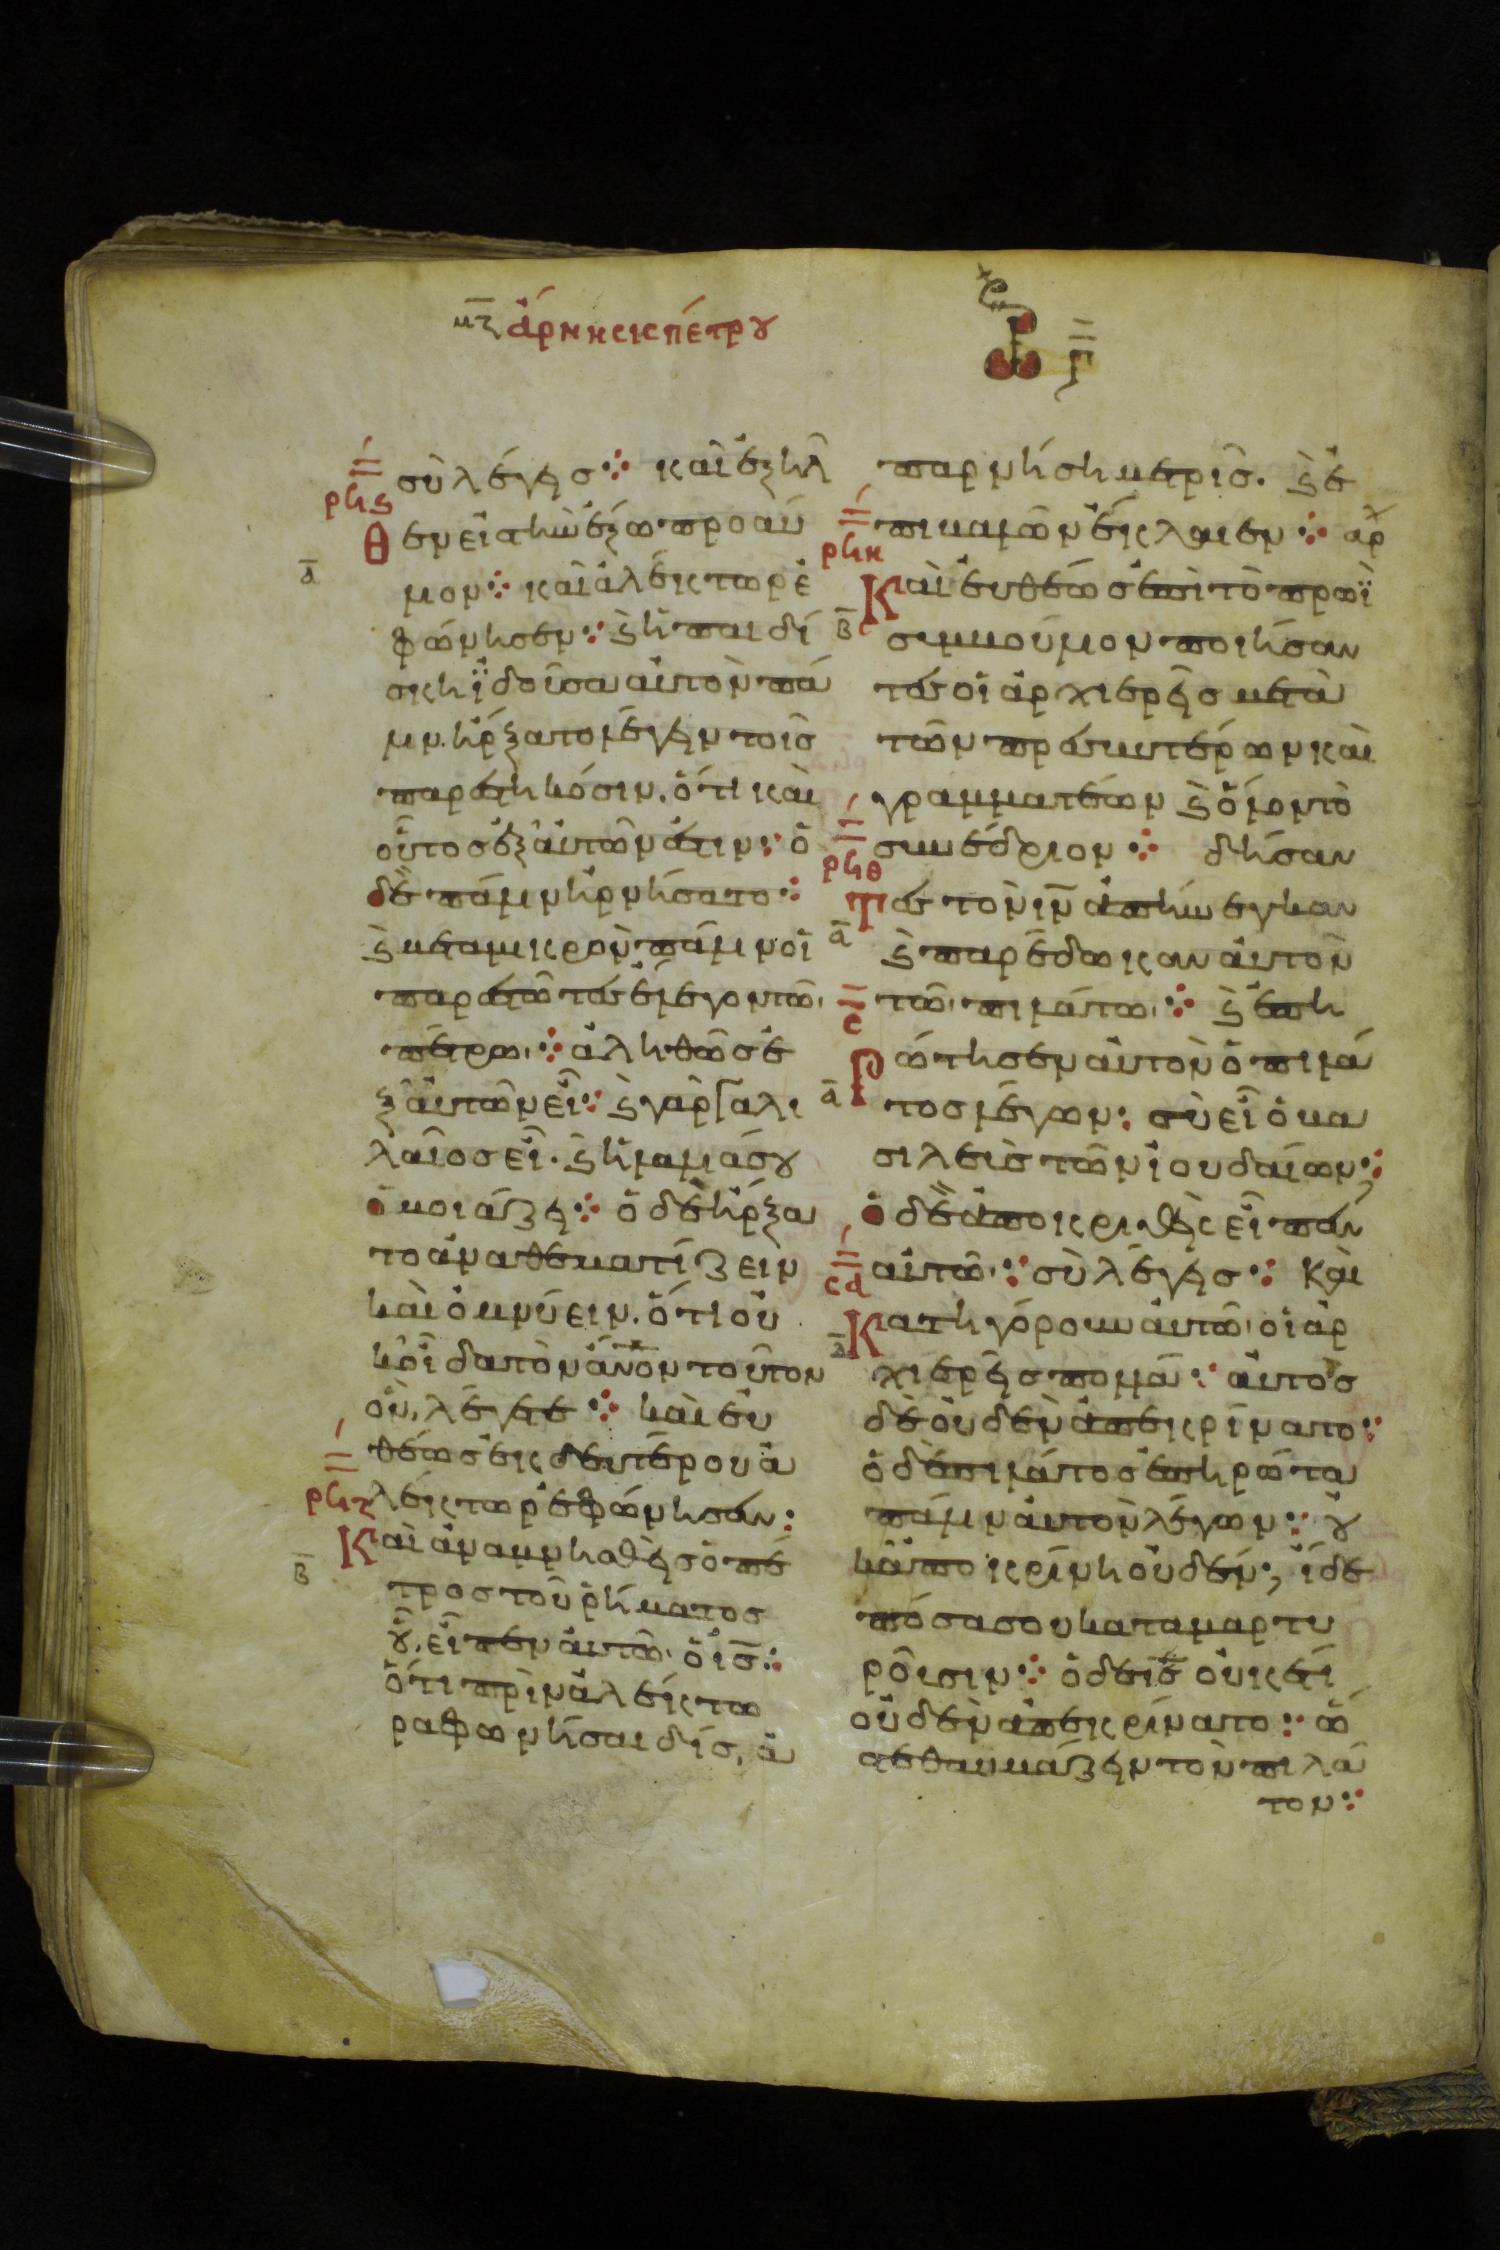 μζ ἄρνησις πέτρου
Γ
σὺ λέγεις· καὶ ἐξῆλ
ρϟϛ
θεν εἰς τὴν ἔξω προαύ
α
λιον· καὶ ἀλέκτωρ ἐ
φώνησεν· ϗ ἡ παιδί
σκη ἰδοῦσα αὐτὸν πά
λιν ἤρξατο λέγειν τοῖς
παρεστηκόσιν, ὅτι καὶ
οὗτος ἐξ αὐτῶν ἐστιν· ὁ
δὲ πάλιν ἠρνήσατο·
ϗ μετα μικρὸν πάλιν οἱ
παρεστῶτες ἔλεγον τῶ
πέτρω· ἀληθῶς ἐ
ξ αὐτῶν εἶ· ϗ γὰρ γαλι
λαῖος εἶ· ϗ ἡ λαλιά σου
ὁμοιάζει· ὁ δὲ ἤρξα
το ἀναθεματίζειν
καὶ ὀμνύειν, ὅτι οὐ
κ οἶδα τὸν ἄνον τοῦτον
ὃν λέγετε· καὶ εὐ
θέως ἐκ δευτέρου ἀ
ρϟζ
λέκτωρ ἐφώνησεν·
Καὶ ἀναμνησθεὶς ὁ πέ
β
τρος τοῦ ῥήματος
οὗ εἶπεν αὐτῶ ὁ ις·
ὅτι πρὶν ἀλέκτω
ρα φωνῆσαι δίς, ἀ
παρνήση με τρίς. ϗ ἐ
πιβαλὼν ἔκλαιεν· ἀρχ
ρϟη
Καὶ εὐθέως ἐπὶ τὸ πρωῒ
β
συμβούλιον ποιήσαν
τες οἱ ἀρχιερεῖς μετὰ
τῶν πρεσβυτέρων καὶ
γραμματέων ϗ ὅλον τὸ
συνέδριον· δήσαν
ρϟθ
Τες τὸν ιν ἀπήνεγκαν
α
ϗ παρέδωκαν αὐτὸν
τῶ πιλάτω· ϗ ἐπη
σ
Ρώτησεν αὐτὸν ὁ πιλά
α
τος λέγων· σὺ εἶ ὁ βα
σιλεὺς τῶν ἰουδαίων·
ὁ δὲ ἀποκριθεὶς εἶπεν
αὐτῶ· σὺ λέγεις· Καὶ
σα
Κατηγόρουν αὐτῶ οἱ ἀρ
δ
χιερεῖς πολλά· αὐτὸς
δὲ οὐδὲν ἀπεκρίνατο·
ὁ δὲ πιλάτος ἐπηρώτα
πάλιν αὐτὸν λέγων· οὐ
κ ἀποκρίνη οὐδέν; ἴδε
πόσα σου καταμαρτυ
ροῦσιν· ὁ δε ις οὐκέτι
οὐδὲν ἀπεκρίνατο· ὥ
στε θαυμάζειν τὸν πιλᾶ
τον·